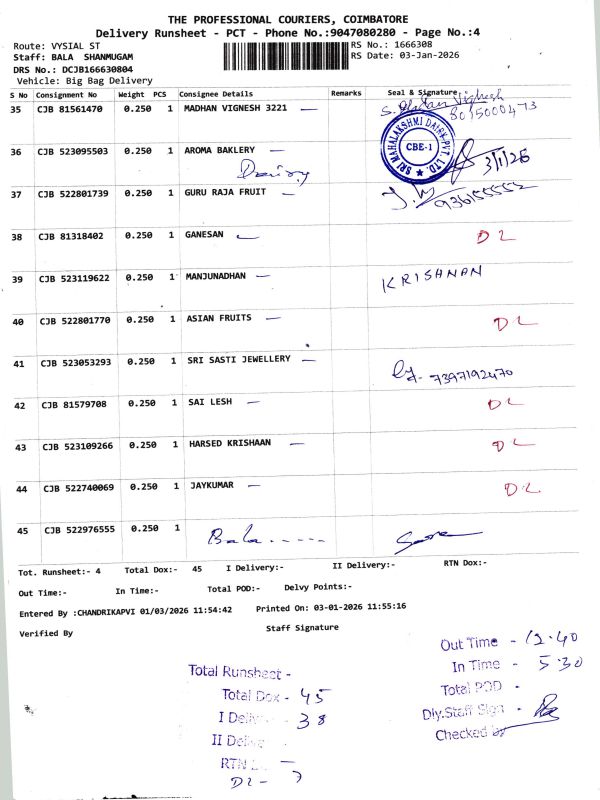 THE PROFESSIONAL COURIERS, COIMBATORE
Delivery Runsheet - PCT - Phone No.:9047080280 - Page No.:4
Route: VYSIAL ST
RS No.: 1666308
Staff: BALA SHANMUGAM
RS Date: 03-Jan-2026
DRS No.: DCJB166630804
Vehicle: Big Bag Delivery
S No Consignment No Weight PCS Consignee Details Remarks Seal & Signature
35 CJB 81561470 0.250 1 MADHAN VIGNESH 3221 —
36 CJB 523095503 0.250 1 AROMA BAKLERY —
SRI MAHALAKSHMI DAIRY PVT. LTD. CBE-1
3/1/26
37 CJB 522801739 0.250 1 GURU RAJA FRUIT —
38 CJB 81318402 0.250 1 GANESAN — DL
39 CJB 523119622 0.250 1 MANJUNADHAN — KRISHNAN
40 CJB 522801770 0.250 1 ASIAN FRUITS — DL
41 CJB 523053293 0.250 1 SRI SASTI JEWELLERY — 7397192470
42 CJB 81579708 0.250 1 SAI LESH — DL
43 CJB 523109266 0.250 1 HARSED KRISHAAN — DL
44 CJB 522740069 0.250 1 JAYKUMAR — DL
45 CJB 522976555 0.250 1 Bala.....
Tot. Runsheet:- 4 Total Dox:- 45 I Delivery:- II Delivery:- RTN Dox:-
Out Time:- In Time:- Total POD:- Delvy Points:-
Entered By :CHANDRIKAPVI 01/03/2026 11:54:42 Printed On: 03-01-2026 11:55:16
Verified By Staff Signature
Total Runsheet -
Total Dox - 45
I Deliv - 38
II Deliv
RTN
DL - 7
Out Time - 12.40
In Time - 5.30
Total POD -
Dly.Staff Sign -
Checked by